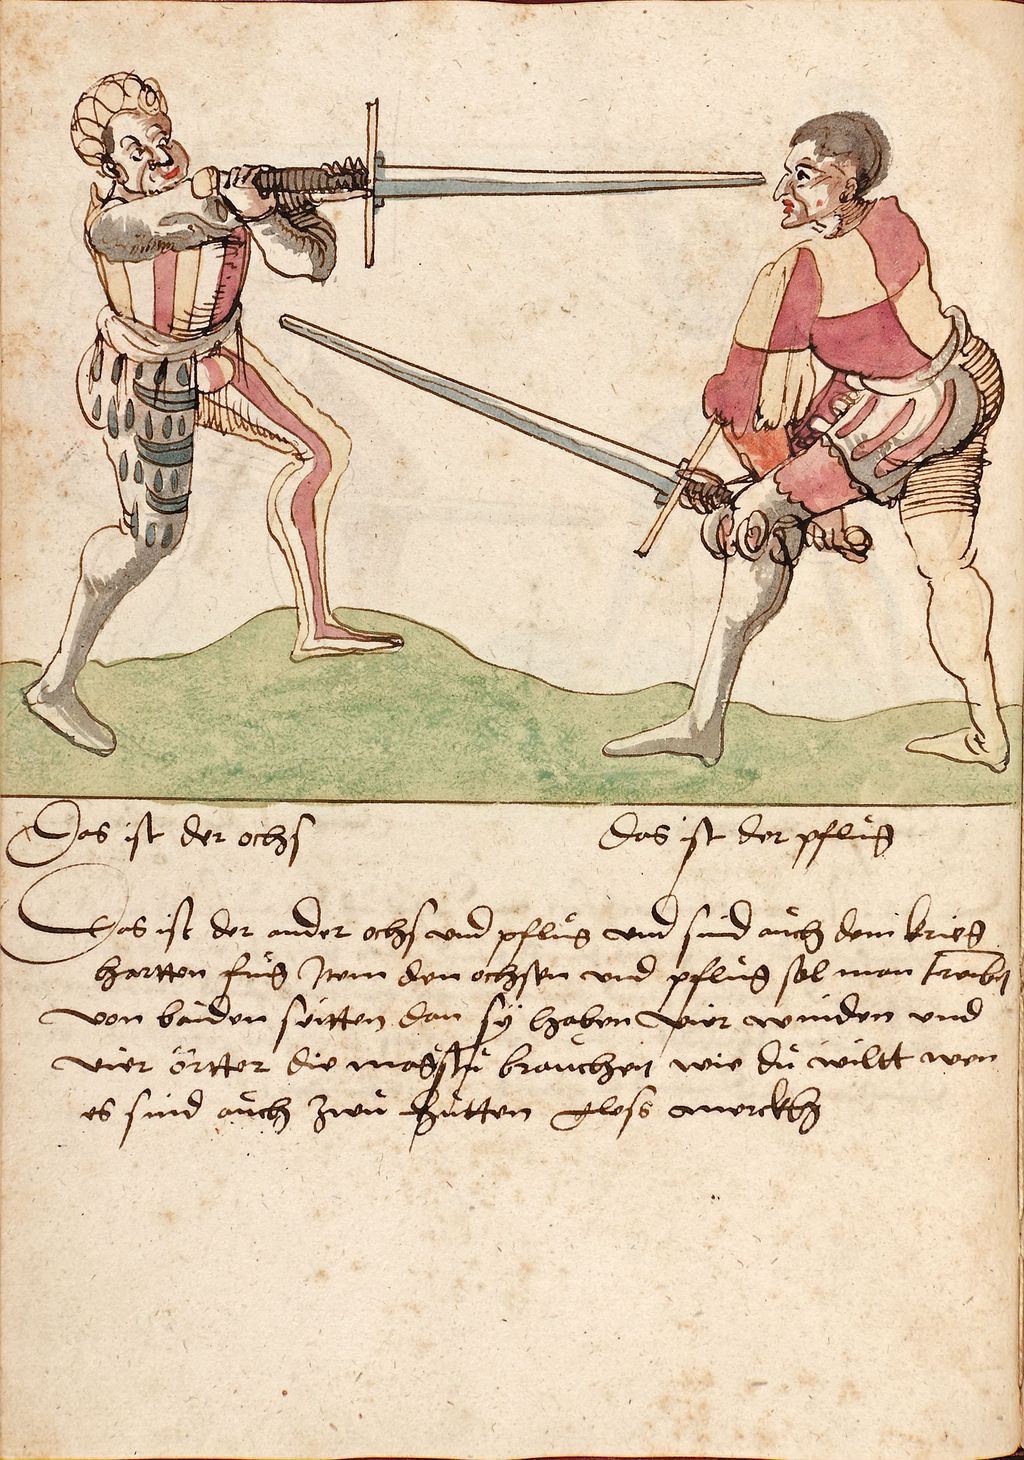 Das ist der ochs
das ist der pflůg
Das ist der ander ochs vnd pflůg vnd sind aůch dem krieg
hartten fůg Item den ochsen vnd pflůg sol man treibn
von baiden seitten dan sÿ haben vier winden vnd
vier örtter die magstu braůchen wie dů wiltt wen
es sind aůch zwů hůtten gloss merckh